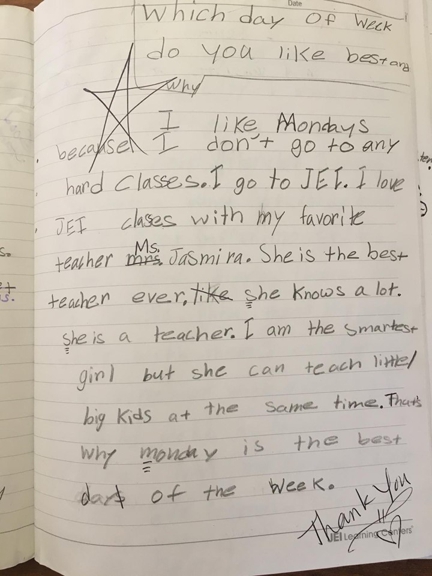 Date
Which day Of Week
do you like best and
Why
I like Mondays
because I don't go to any
hard Classes. I go to JEI. I love
JEI clases with my favorite
teacher mrs. Ms. Jasmira. She is the best
teacher ever. like she knows a lot.
she is a teacher. I am the smartest
girl but she can teach little/
big kids at the same time. Thats
why monday is the best
of the week.
Thank You
JEI Learning Centers